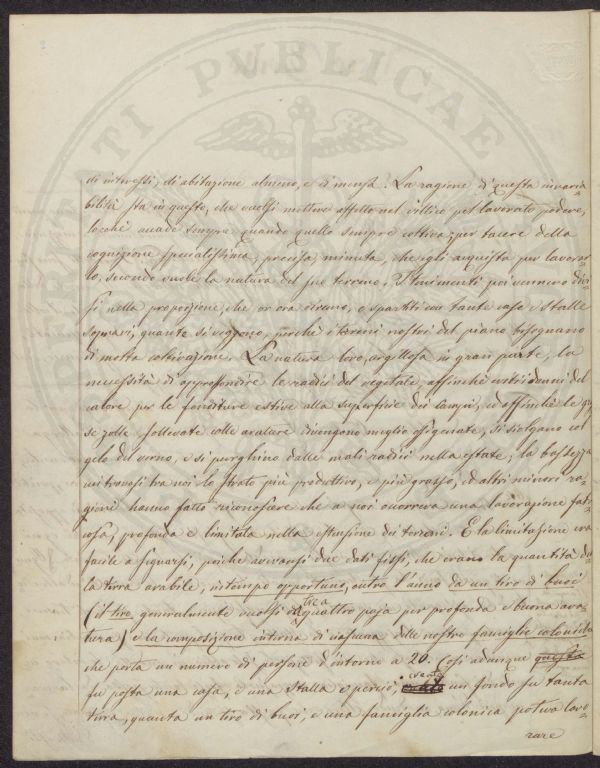 di interessi, di abitazione almeno, e di mensa. La ragione di questa invaria-
bilità sta in questo, che vuolsi mettere affetto nel villico pel lavorato podere,
locchè accade sempre quando quello sempre coltiva; per tacere della
cognizione specialissima, precisa, minuta, che egli acquista per lavorar-
lo, secondo vuole la natura del suo terreno. I tenimenti poi vennero divi-
si nella proporzione, che or ora diremo, e spartiti con tante case e Stalle
sopravi, quante si veggono, perchè i terreni nostri del piano bisognano
di molta coltivazione. La natura loro, argillosa in gran parte, la
necessità di approfondire le radici del vegetale, affinchè eviti i danni del
calore per le fenditure estive alla superficie dei Campi, ed affinchè le gros-
se zolle sollevate colle arature divengono meglio ossigenate, si sciolgano col
gelo del verno, e si purghino dalle mali radici nella estate; la bassezza
cui trovasi tra noi lo strato più produttivo, e più grasso, ed altri minori ra-
gioni hanno fatto riconoscere che a noi occorreva una lavorazione fati-
cosa, profonda e limitata nella estensione dei terreni. E la limitazione era
facile a segnarsi, poichè avevansi due dati fissi, che erano la quantità del-
la terra arabile, in tempo opportuno, entro l'anno da un tiro di buoi
(il tiro generalmente vuolsi di circa quattro paja per profonda e buona ara-
tura) e la composizione interna di ciascuna delle nostre famiglie coloniche
che porta un numero di persone d'intorno a 20. Così adunque
fu posta una casa, e una Stalla e perciò, un fondo su tanta
terra, quanta un tiro di buoi, e una famiglia colonica poteva lavo-
rare
PVBLICAE